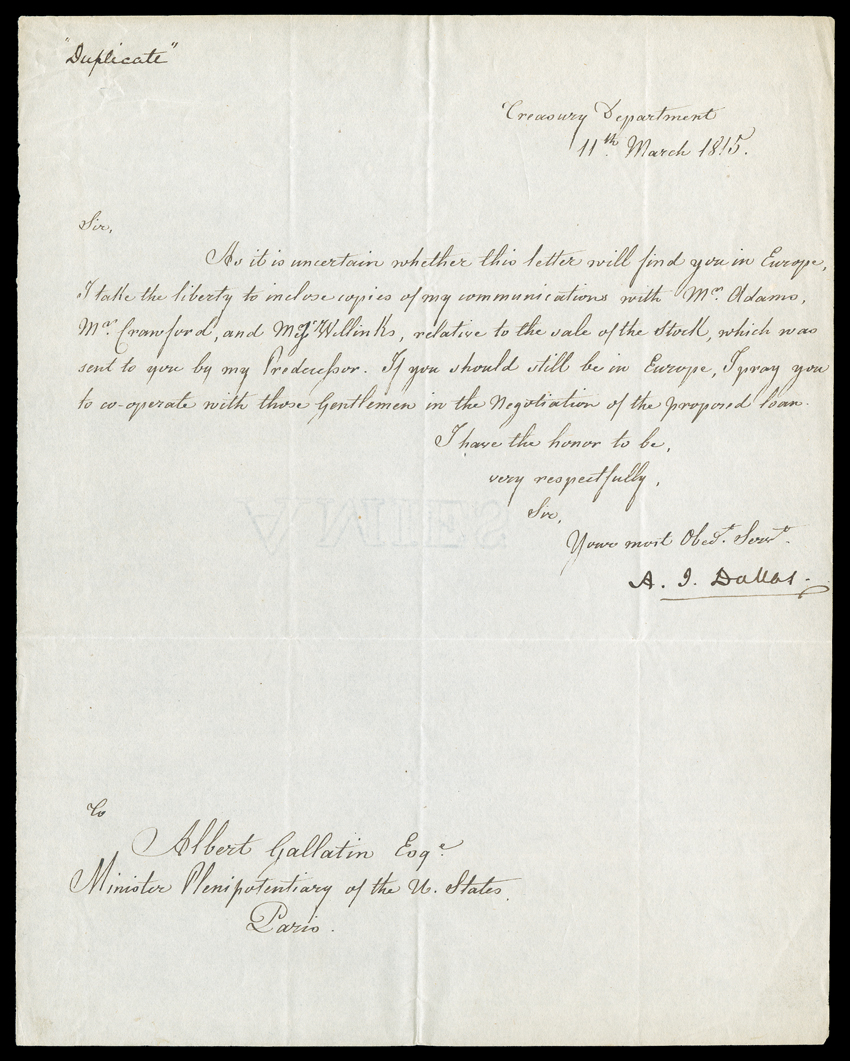 "Duplicate"
Treasury Department
11th. March 1815.
Sir,
As it is uncertain whether this letter will find you in Europe,
I take the liberty to inclose copies of my communications with Mr. Adams,
Mr. Crawford, and Messrs Willinks, relative to the sale of the Stock, which was
sent to you by my Predecessor. If you should still be in Europe, I pray you
to co-operate with those Gentlemen in the Negotiation of the proposed loan.
I have the honor to be,
very respectfully,
Sir,
Your most Obedt. Servt.
A. J. Dallas.
To
Albert Gallatin Esqe.
Minister Plenipotentiary of the U. States.
Paris.